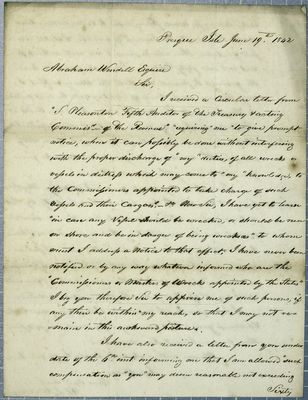 Presque Isle June 19th 1842
Abraham Wendell Esquire
Sir,
I received a Circular letter from
"S. Pleasonton Fifth Auditor of the Treasury & acting
Commissr of the Revenue" requiring "me" to give prompt
notice, when it can possibly be done without interfering
with the proper discharge of "my" duties, of all wrecks or
vessels in distress which may come to "my" knowledge to
the Commissioners appointed to take charge of such
vessels and their Cargoes. Now Sir, I have yet to learn
in case any Vessel should be wrecked, or should be run
on shore and be in danger of being wrecked" to whom
must I address a Notice to that effect, I have never been
notified or by any way whatever informed who are the
Commissioners or Master of Wrecks appointed by the State
I beg you therefore Sir to apprise me of such persons, if
any there be within my reach, so that I may not re-
main in this awkward posture.
I have also received a letter from you under
date of the 4th inst informing me that I am allowed such
compensation as "you" may deem reasonable not exceeding
Sixty